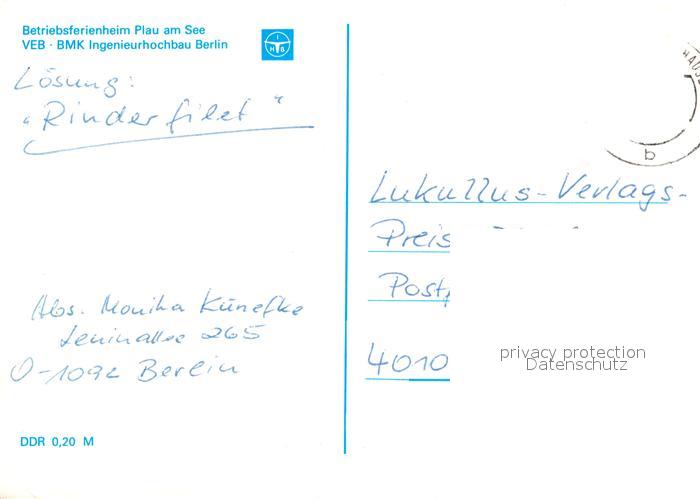 Betriebsferienheim Plau am See
VEB · BMK Ingenieurhochbau Berlin
I
H B
Lösung:
"Rinderfilet"
Abs. Monika Künefke
Leninallee 265
O-1092 Berlin
DDR 0,20 M
b
Lukullus-Verlags-
Preis
Post
4010
privacy protection
Datenschutz